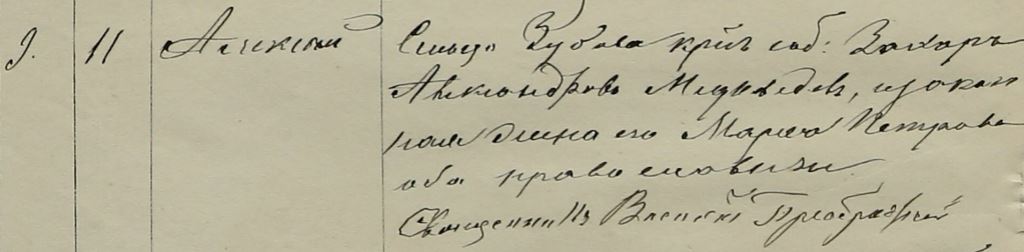 9. 11 Алексий Сельца Зубова крес. соб: Захаръ
Александровъ Медведевъ, и закон
ная жена его Марія Петрова
оба православные
Священникъ Василій Преображенскій